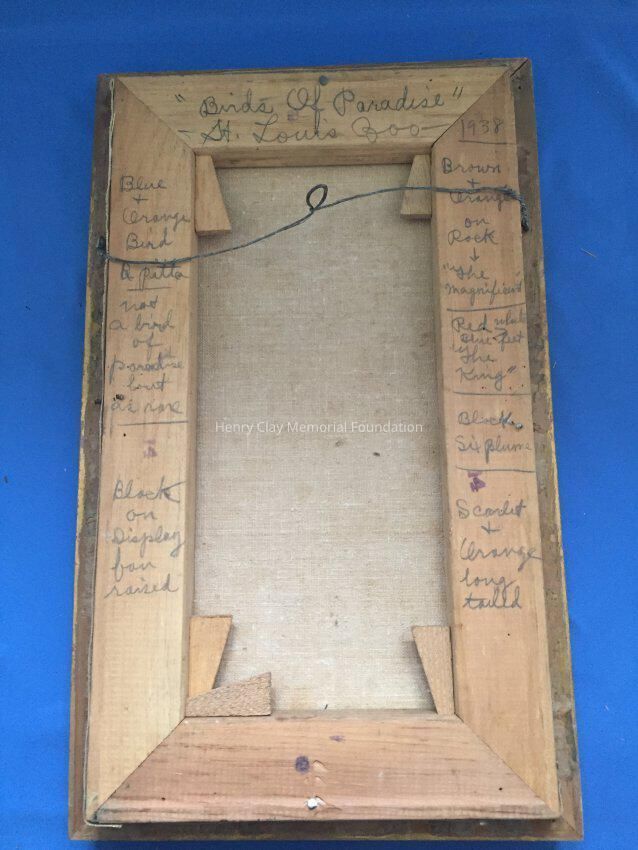 "Birds Of Paradise"
- St. Louis Zoo -
1938
Blue
+
Orange
Bird
A pitta
not
a bird
of
paradise
but
as rare
14
Black
on
Display
fan
raised
Brown
+
Orange
on
Rock
↓
"The
Magnificent"
Red white
blue feet
"The
King"
Black
Six plume
14
Scarlet
+
Orange
long
tailed
Henry Clay Memorial Foundation